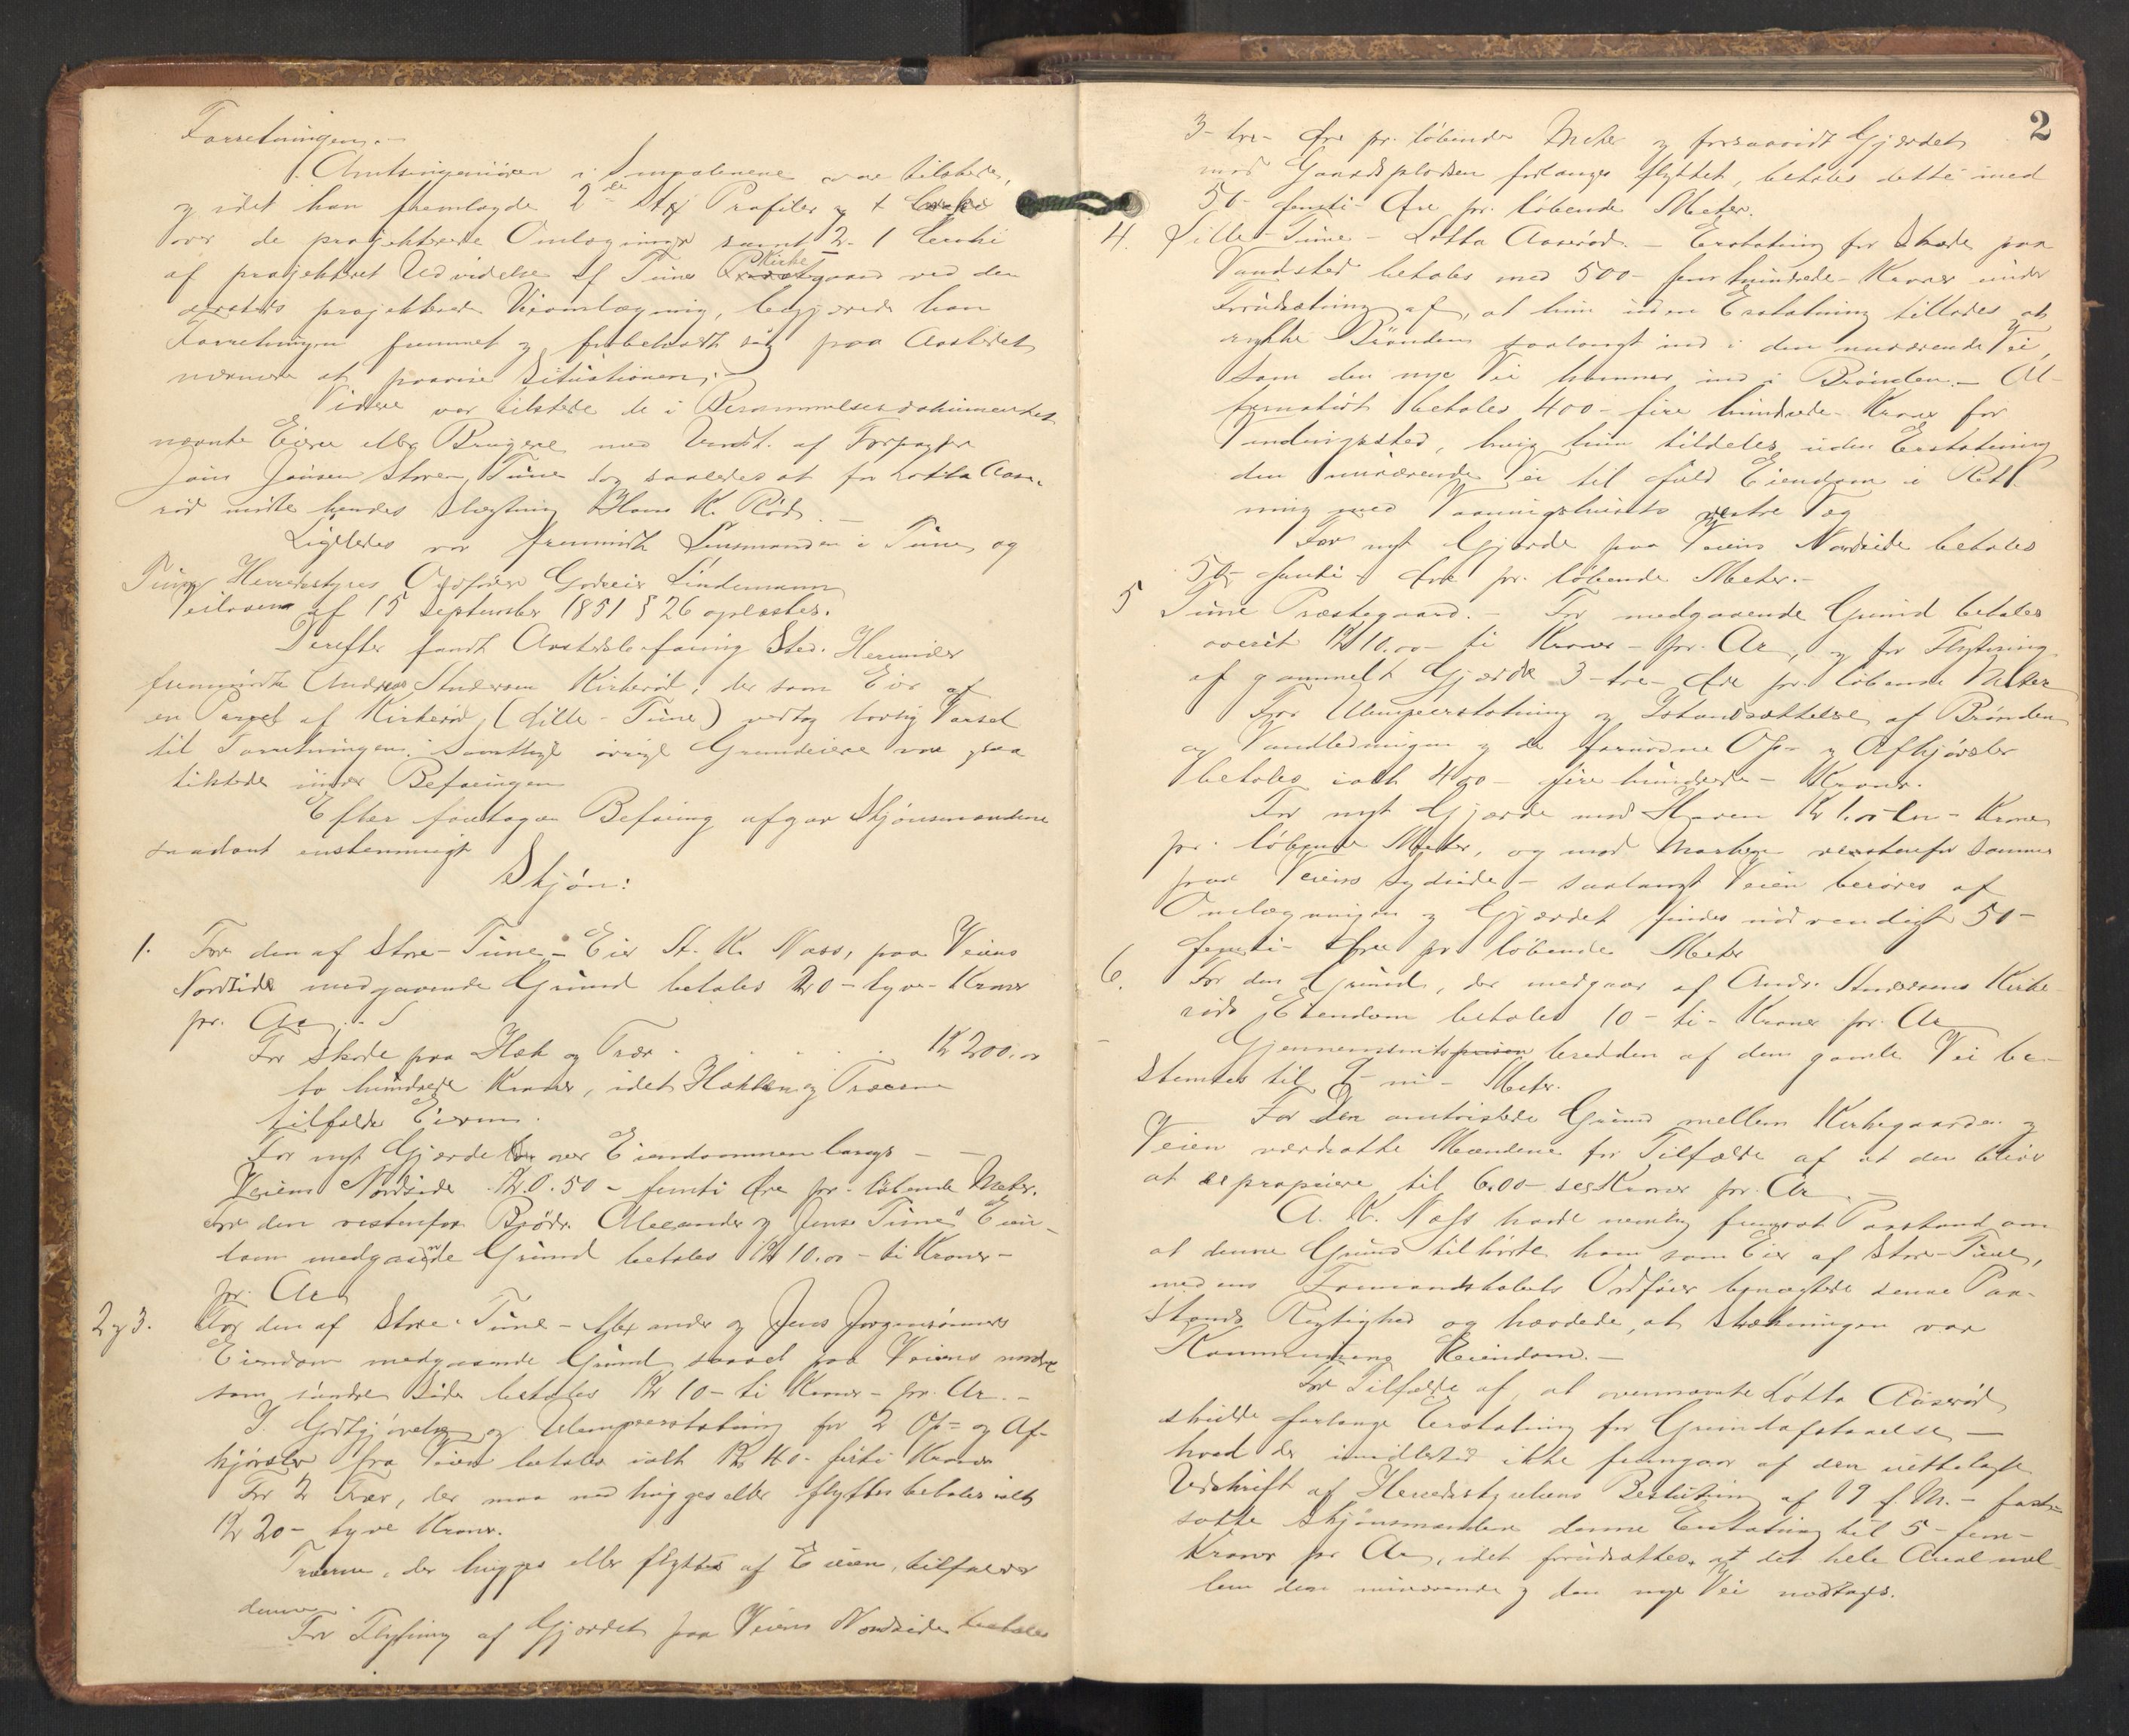 Forretningen.-
Amtsingeniören i Smaalenene var tilstede,
og idet han fremlagde 2de Profiler og 1
over de projekterede Omlægninger samt 2- 1
af projekteret Udvidelse af Tune Kirkegaard ved den
projekterede Veiomlægning, begjærede han
Forretningen fremmet og forbeholdt sig paa Aastedet
nærmere at paavise Situationen.-
Videre var tilstede de i Berammelsesdokumentet
nævnte Eiere eller Brugere med Undt. af Forpagter
Jöns Jönsen Store Tune dog saaledes at for Lotta Aase-
röd mötte hendes Slægtning Hans K. Röd.-
Ligeledes var fremmödt Lensmanden i Tune, og
Tune Herredsstyres Ordförer Godseier Lindemann
Veiloven af 15 September 1851 § 26 oplæstes.
Derefter fandt Aastedsbefaring Sted. Herunder
fremmödte Andreas Andersen Kirkeröd, der som Eier af
en Parcel af Kirkeröd, (Lille-Tune) vedtog lovlig Varsel
til Forretningen. Samtlige övrige Grundeiere var
tilstede under Befaringen
Efter foretagen Befaring afgav Skjönsmændene
saadant enstemmigt
Skjön:
1. For den af Store-Tune - Eier A. K. Nass, paa Veiens
Nordside medgaaende Grund betales 20-tyve-Kroner
pr. Ar.-
For Skade paa Hæk og Trær . . . . . Kr 200.00
to hundrede Kroner, idet Hækken og Trærne
tilfalder Eieren.
For nyt Gjærde over Eiendommen langs -
Veiens Nordside Kr. 0.50 - femti Öre pr. löbende Meter.
For den vestenfor Brödr. Alexander og Jens Tunes Eien-
dom medgaaende Grund betales Kr 10.00 - ti Kroner-
pr. Ar
2 og 3. For den af Store-Tune - Alexander og Jens Jorgensönners
Eiendom medgaaende Grund saavel paa Veiens nordre
som söndre Side betales Kr 10-ti Kroner - pr. Ar.-
I Godtgjörelse og Ulempeerstatning for 2 Op- og Af-
kjörsler fra Veien betales ialt Kr 40- firti Kroner
For 2 Trær, der maa nedhugges eller flyttes betales ialt
Kr 20- tyve Kroner.
Trærne, der hugges eller flyttes af Eieren, tilfalder
denne.
For Flytning af Gjærdet paa Veiens Nordside betales
2
3-tre- Öre pr. löbende Meter og forsaavidt Gjærdet
mod Gaardspladsen forlanges flyttet, betales dette med
50-femti- Öre pr. löbende Meter.
4. Lille-Tune - Lotta Aaseröd. - Erstatning for Skade paa
Vandsted betales med 500-fem hundrede-Kroner under
Forudsætning af, at hun uden Erstatning tillades at
rykke Brönden saalangt ind i den nuværende Vei,
som den nye Vei kommer ind i Brönden.- Al-
ternativt betales 400-fire hundrede-Kroner for
Vandingssted, hvis hun tildeles uden Erstatning
den nuværende Vei til fuld Eiendom i Ret-
ning med Vaaningshusets vestre Væg
For nyt Gjærde paa Veiens Nordside betales
50-femti-Öre pr. löbende Meter.-
5 Tune Præstegaard.- For medgaaende Grund betales
overalt Kr 10.00-ti Kroner- pr. Ar, og for Flytning
af gammelt Gjærde 3-tre-Öre pr. löbende Meter
For Ulempeerstatning og Istandsættelse af Brönden
og Vandledningen og de fornödne Op- og Afkjörsler
betales ialt 400-fire hundrede- Kroner.
For nyt Gjærde mod Haven Kr 1.00-en-Krone
pr. löbende Meter, og mod Marken vestenfor samme
paa Veiens Sydside- saalangt Veien beröres af
Omlægningen og Gjærdet findes nödvendigt 50-
femti-Öre pr löbende Meter
6. For den Grund, der medgaar af Andr. Andersens Kirke-
röds Eiendom betales 10-ti-Kroner pr. Ar
Gjennemsnitsprisen bredden af den gamle Vei be-
stemtes til 9-ni-Meter.
For den omtvistede Grund mellem Kirkegaarden og
Veien værdsatte Mændene for Tilfælde af at den bliver
at expropriere til 6.00-sex Kroner pr. Ar.-
A. K. Nass havde nemlig fremsat Paastand om
at denne Grund tilhörte ham som Eier af Store-Tune,
medens Formandskabets Ordförer benægtede denne Paa-
stands Rigtighed og hævdede, at Strækningen var
Kommunens Eiendom.-
For Tilfælde af, at ovennævnte Lotta Aaseröd
skulde forlange Erstatning for Grundafstaaelse -
hvad der imidlertid ikke fremgaar af den
Udskrift af Herredsstyrelsens Beslutning af 19 f. M.- fast-
satte Skjönsmændene denne Erstatning til 5-fem-
Kroner pr Ar, idet forudsættes, at det hele Areal mel-
lem den nuværende og den nye Vei medtages.